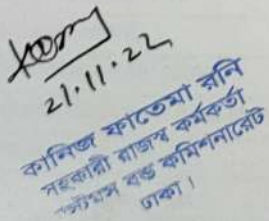 21.11.22
কানিজ ফাতেমা রনি
সহকারী রাজস্ব কর্মকর্তা
কাস্টমস বন্ড কমিশনারেট
ঢাকা।